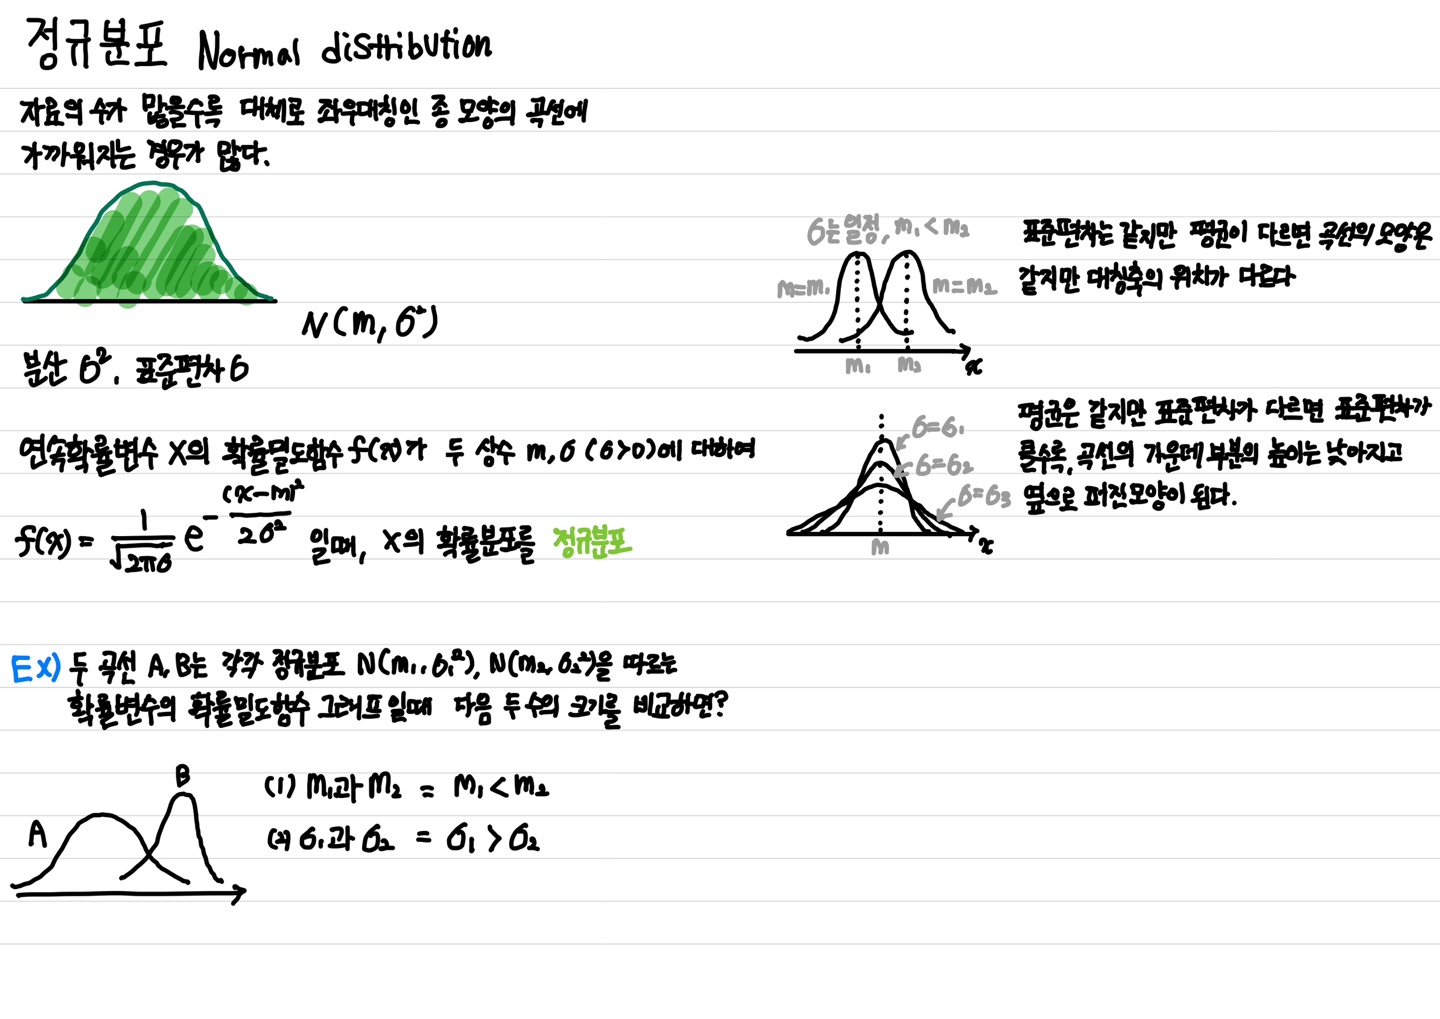 정규분포 Normal distribution
자료의 수가 많을수록 대체로 좌우대칭인 종 모양의 곡선에
가까워지는 경우가 많다.
N(m, σ²)
분산 σ², 표준편차 σ
연속확률변수 X의 확률밀도함수 f(x)가 두 상수 m, σ (σ>0)에 대하여
f(x) = 1/√2πσ e^-(x-m)²/2σ² 일때, X의 확률분포를 정규분포
σ는 일정, m₁ < m₂
m=m₁ m=m₂
m₁ m₂ x
표준편차는 같지만 평균이 다르면 곡선의 모양은
같지만 대칭축의 위치가 다르다
σ=σ₁
σ=σ₂
σ=σ₃
m x
평균은 같지만 표준편차가 다르면 표준편차가
클수록, 곡선의 가운데 부분의 높이는 낮아지고
옆으로 퍼진모양이 된다.
EX) 두 곡선 A, B는 각각 정규분포 N(m₁, σ₁²), N(m₂, σ₂²)을 따르는
확률변수의 확률밀도함수 그래프 일때 다음 두 수의 크기를 비교하면?
A B
(1) m₁과 m₂ = m₁ < m₂
(2) σ₁과 σ₂ = σ₁ > σ₂